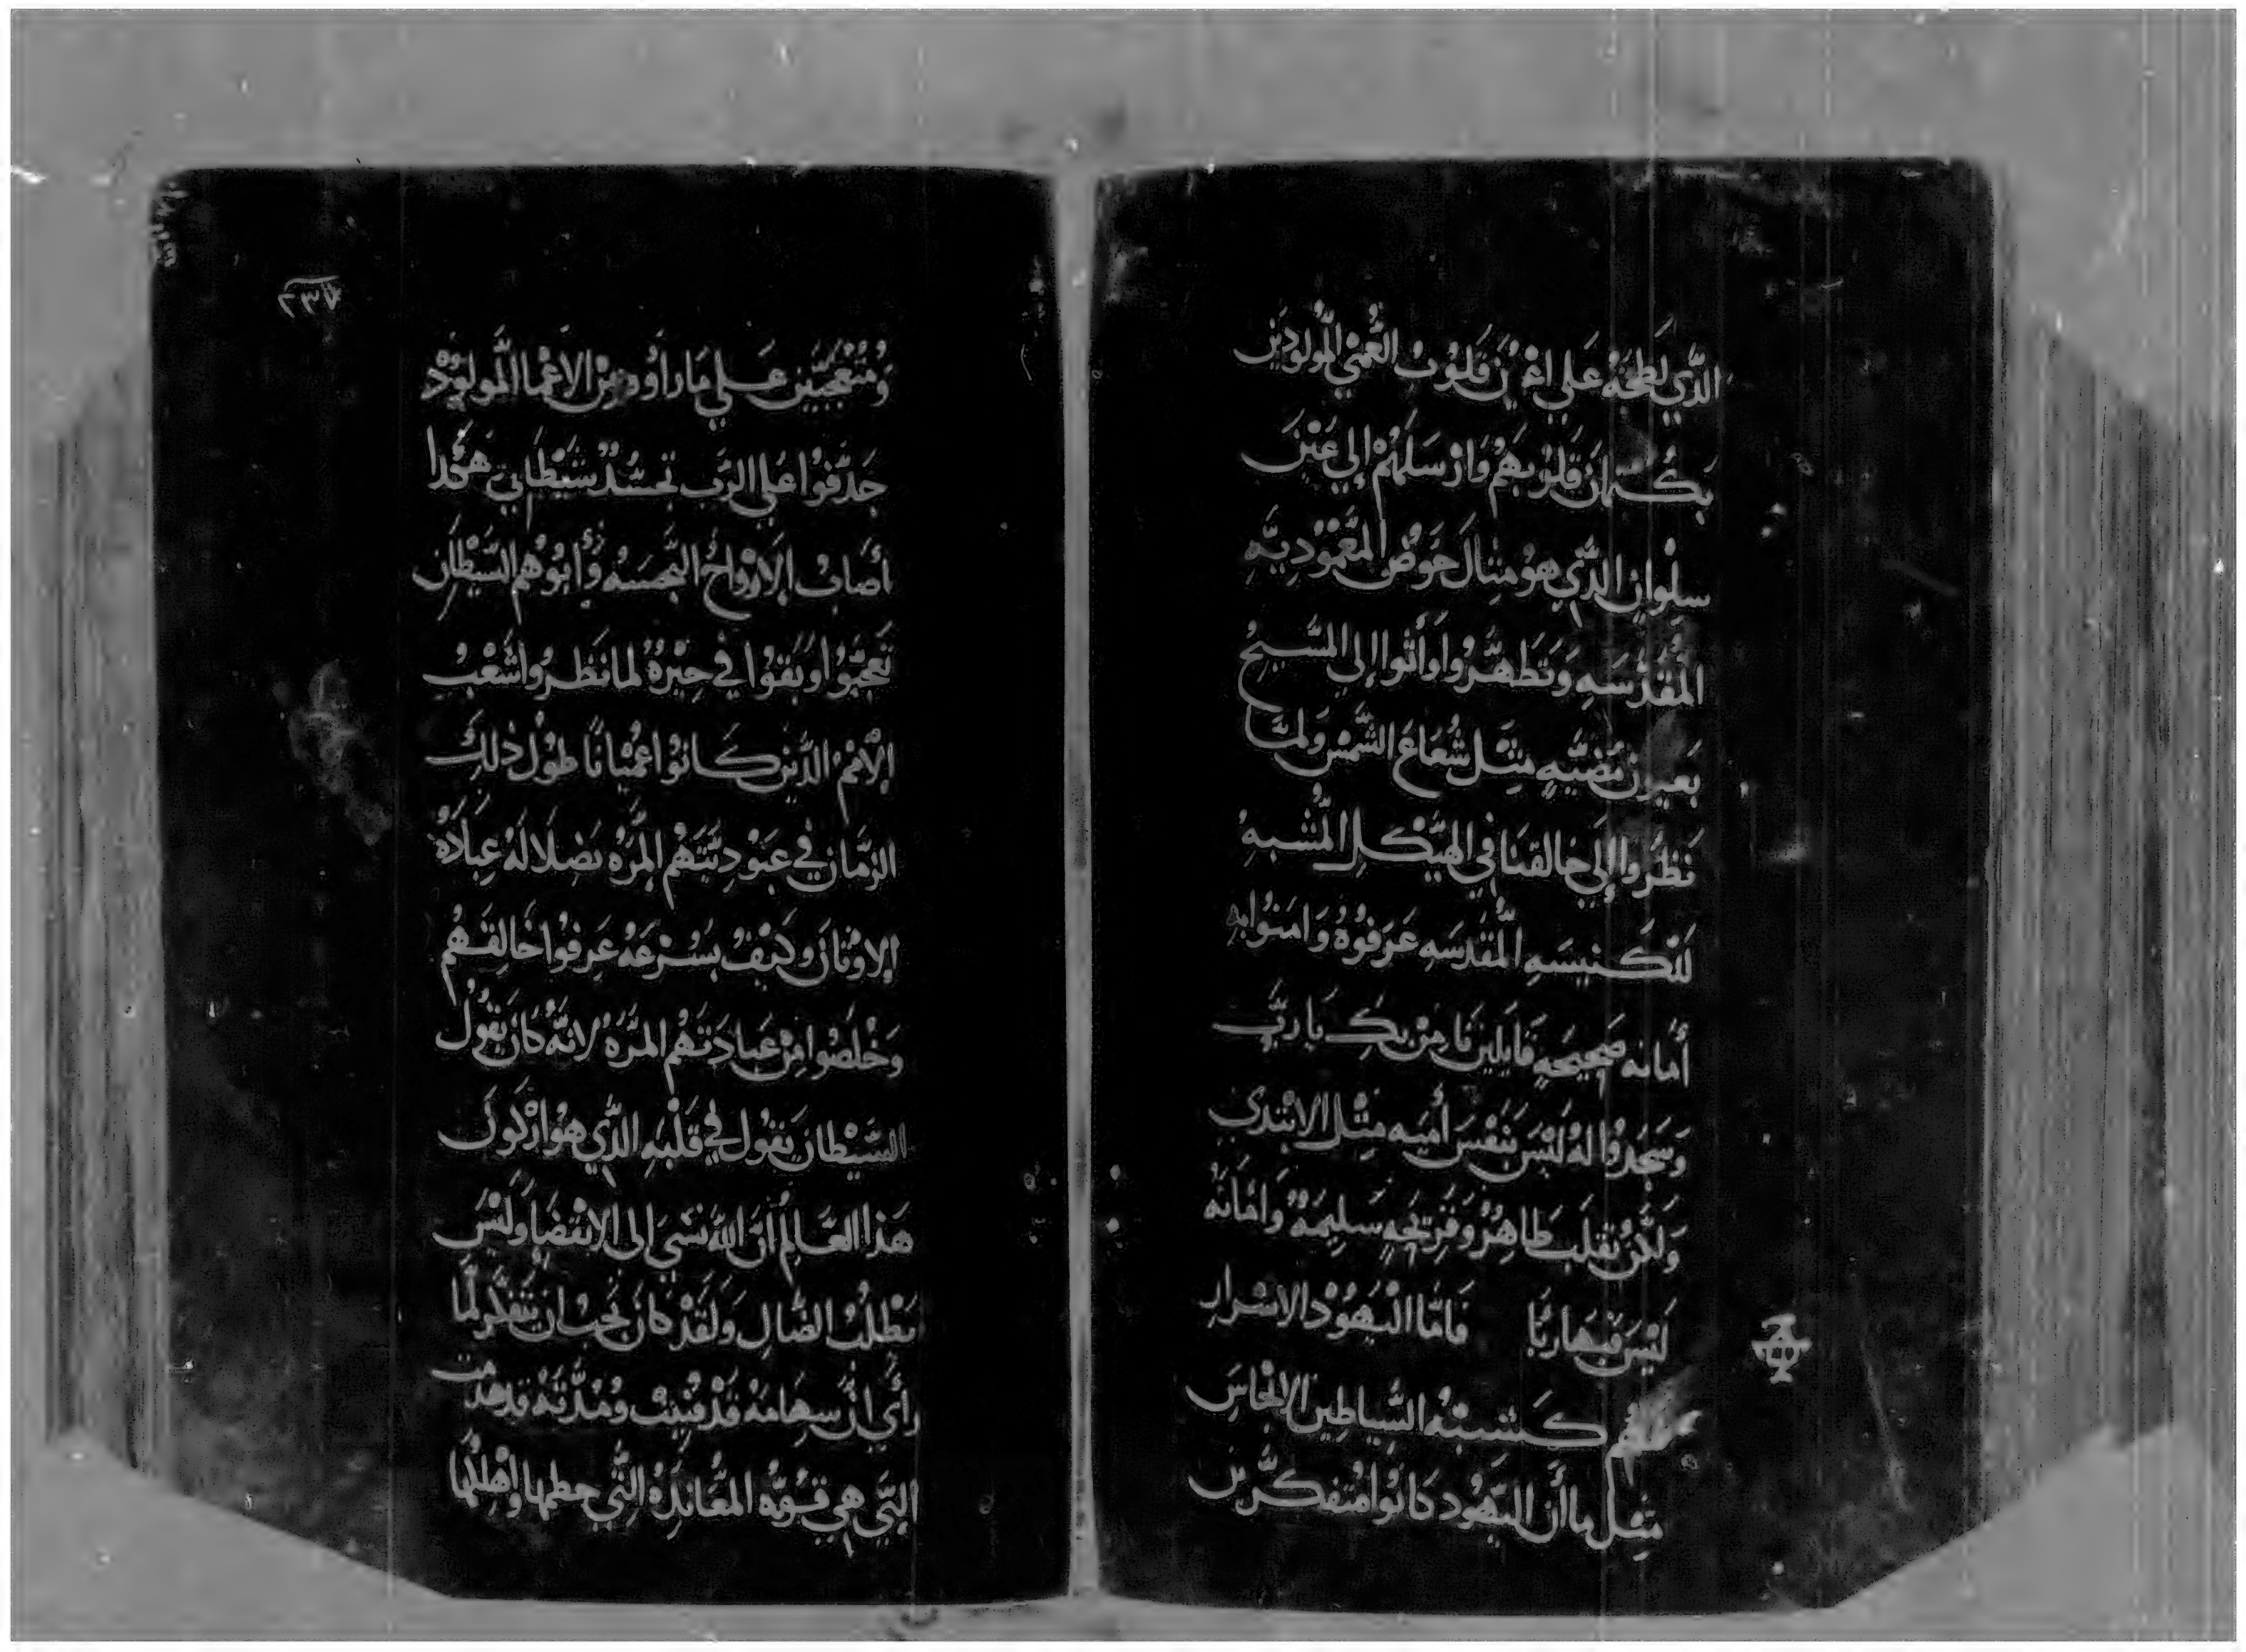 الذي لطخه علي اعين قلوب العمي المولودين
بكتمان قلوبهم وارسلهم إلي عين
سلوان الذي هو مثال حوض المعموديه
المقدسه وتطهروا وأتوا إلي المسيح
بعيون مضيه مثل شعاع الشمس ولما
نظروا إلي خالقنا في الهيكل المشبه
للكنيسه المقدسه عرفوه وامنوا به
أمانه صحيحه قايلين نامن بك يارب
وسجدوا له ليس بنفس أميه مثل الابتدي
ولكن بقلب طاهر وقريحه سليمه وامانه
ليس فيها ريا فاما اليهود الاشرار
فهم كشبه الشياطين الانجاس
مثل ما أن اليهود كانوا متفكرين
٢٣٧
ومتعجبين علي ما راوه من الاعما المولود
جدفوا علي الرب تحسد شيطاني هكدا
أصاب الارواح النجسه وأبوهم الشيطان
تعجبوا وبقوا في حيره لما نظروا شعب
الامم الذين كانوا عميانا طول ذلك
الزمان في عبوديتهم المره بضلاله عبادة
الاوثان وكيف بسرعه عرفوا خالقهم
وخلصوا من عبادتهم المره لانه كان يقول
الشيطان يقول في قلبه الذي هو اركون
هذا العالم أن الله نسي الى الانقضا وليس
يطلب الضال ولقد كان يجب ان يتفكر لما
رأي ان سهامه قد فنيت ومدته قد هدمت
التي هي قوته المعانده التي حطمها واهلكها